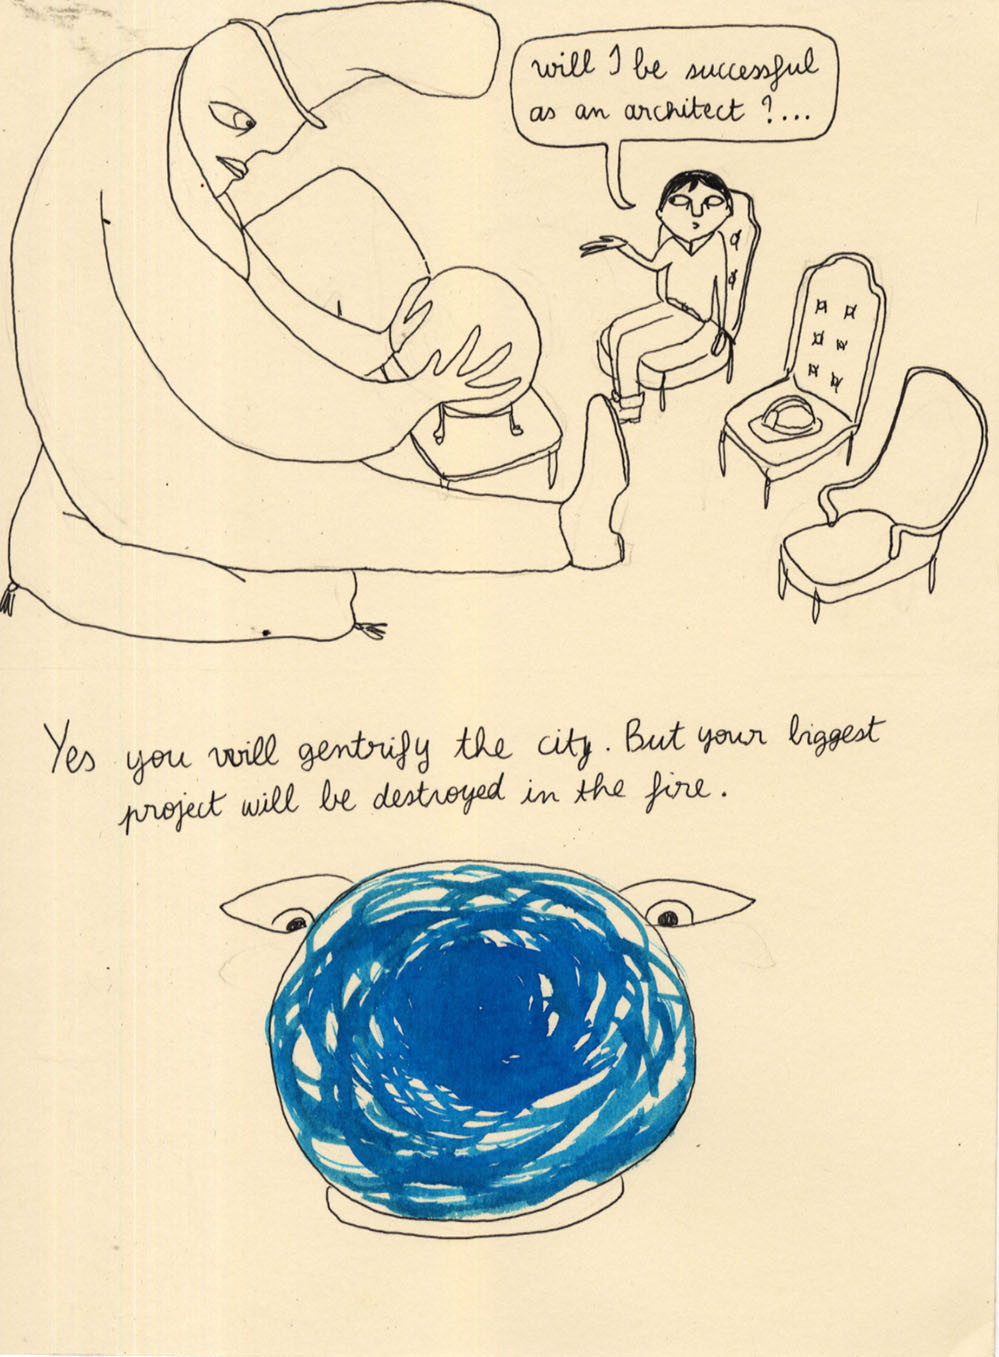 will I be successful
as an architect ?...
Yes you will gentrify the city. But your biggest
project will be destroyed in the fire.